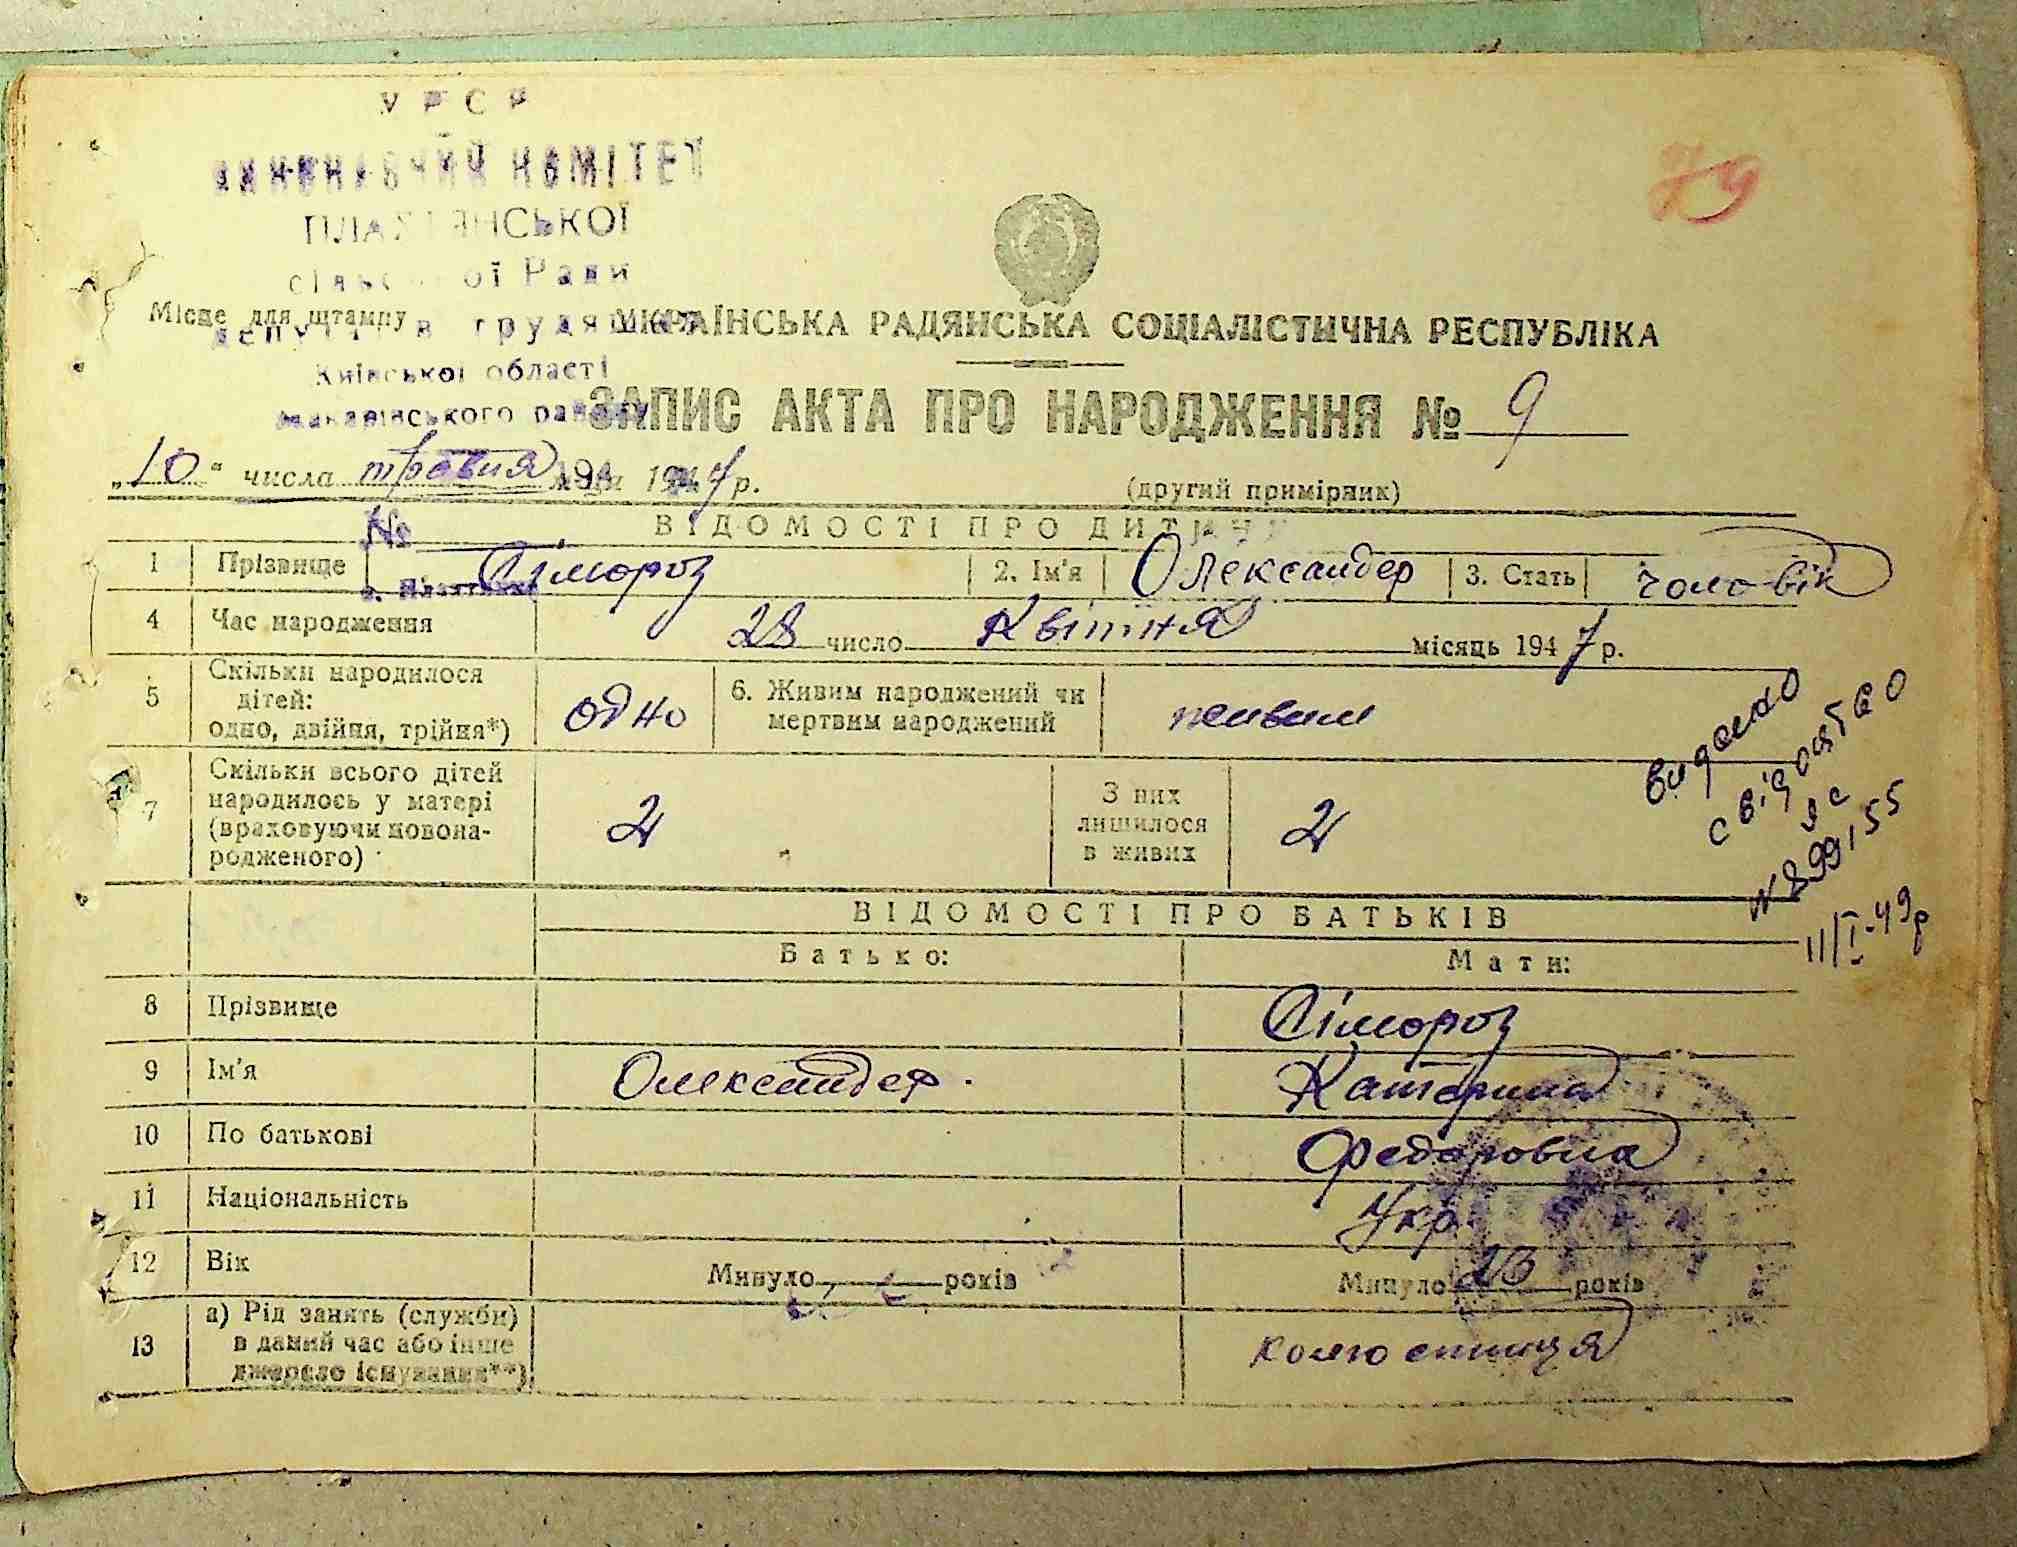 79
УРСР
ВИКОНАВЧИЙ КОМІТЕТ
ПЛАХТЯНСЬКОЇ
сільської Ради
депутатів трудящих
Київської області
Макарівського району
Місце для штампу
УКРАЇНСЬКА РАДЯНСЬКА СОЦІАЛІСТИЧНА РЕСПУБЛІКА
ЗАПИС АКТА ПРО НАРОДЖЕННЯ № 9
„10“ числа травня 1947 р.
(другий примірник)
№
ВІДОМОСТІ ПРО ДИТИНУ
1 Прізвище Лімороз 2. Ім'я Олександер 3. Стать чоловік
4 Час народження 28 число Квітня місяць 1947 р.
5 Скільки народилося дітей: одно, двійня, трійня*) одно 6. Живим народжений чи мертвим народжений живим
7 Скільки всього дітей народилось у матері (враховуючи новонародженого) 2 З них лишилося в живих 2
видано
свідоцтво
№ 899155
11/I-49р
ВІДОМОСТІ ПРО БАТЬКІВ
Батько: Мати:
8 Прізвище Лімороз
9 Ім'я Олександер. Катерина
10 По батькові Федоровна
11 Національність Укр.
12 Вік Минуло років Минуло 23 років
13 а) Рід занять (служби) в даний час або інше джерело існування**)